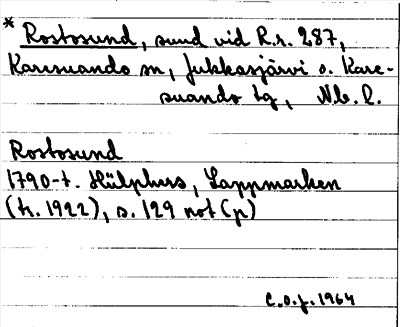 * Rostosund, sund vid R.r. 287,
Karesuando sn, Jukkasjärvi o. Kare-
suando tg, Nb. l.
Rostosund
1790-t. Hülphers, Lappmarken
(tr. 1922), s. 129 not (p)
C.o.j. 1964